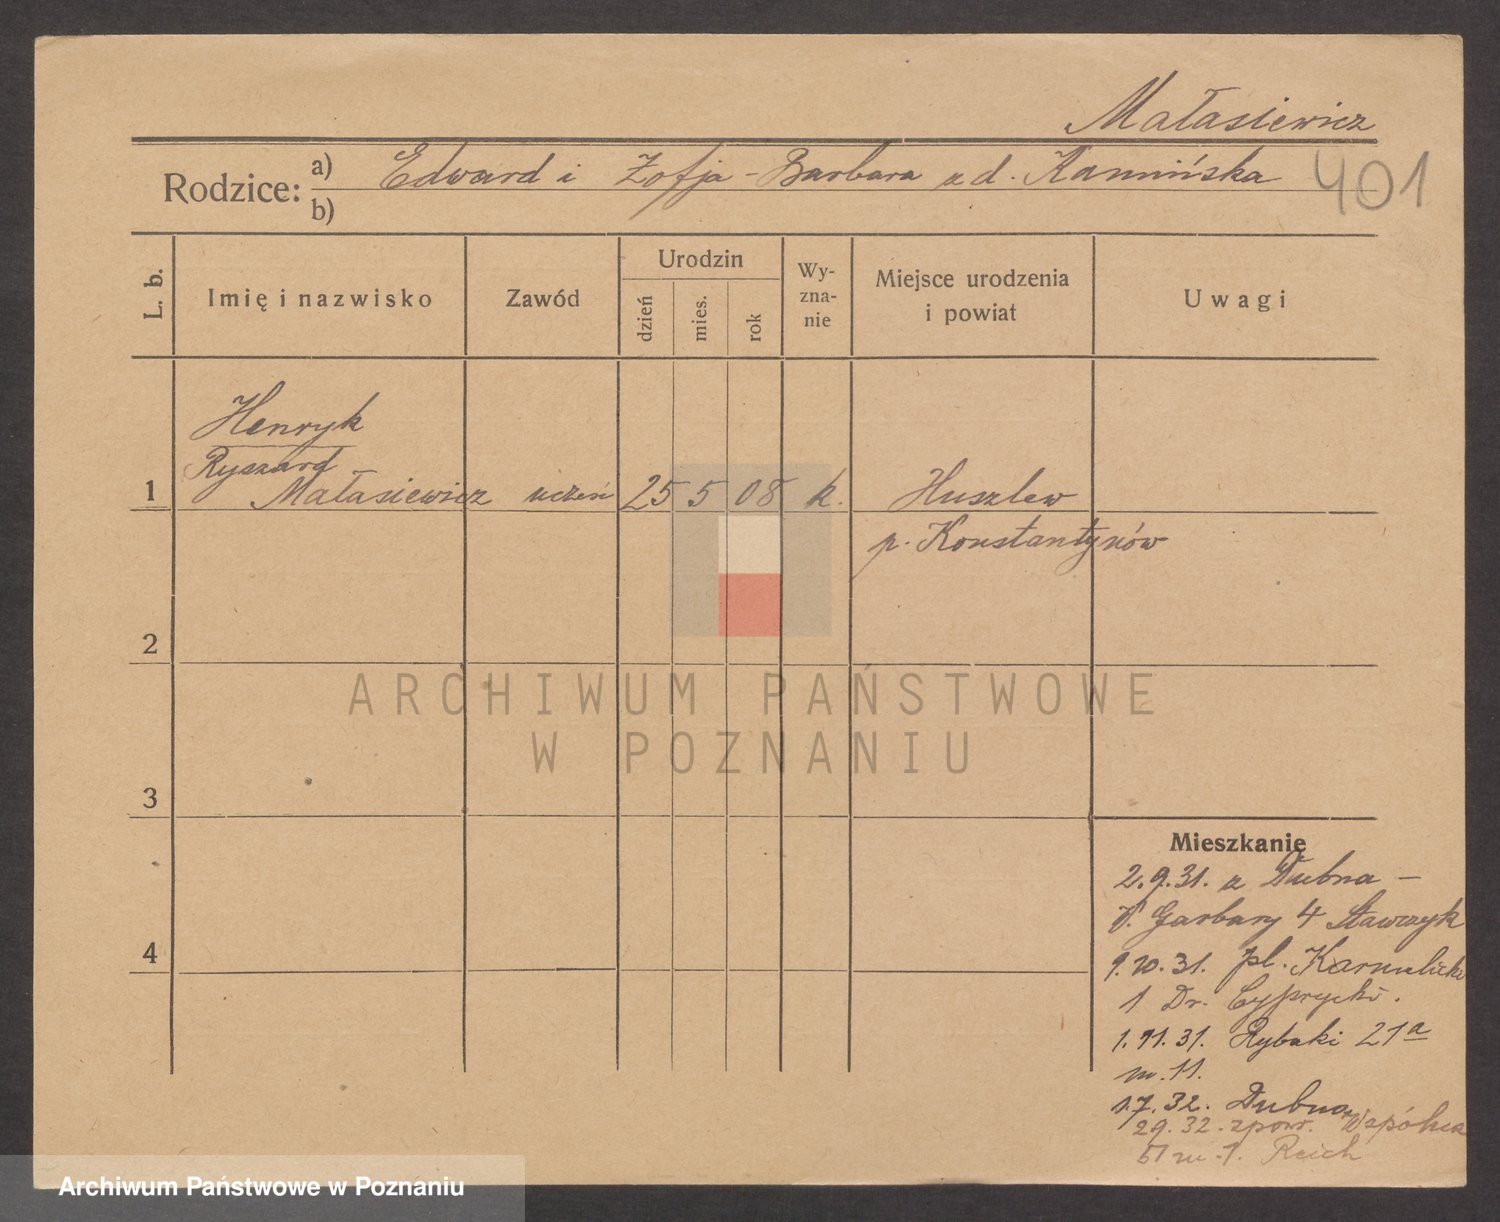 Małasiewicz
Rodzice: a) Edward i Zofja - Barbara z d. Kamińska
401
b)
L. b.
Imię i nazwisko
Zawód
Urodzin
dzień
mies.
rok
Wy-
zna-
nie
Miejsce urodzenia
i powiat
Uwagi
Henryk
Ryszard
1 Małasiewicz uczeń 25 5 08 k. Huszlew
p. Konstantynów
2
ARCHIWUM PAŃSTWOWE
W POZNANIU
3
Mieszkanie
2.9.31. z Dubna -
Garbary 4 Stawczyk
4
9.10.31. pl. Karmelicki
1 Dr.
1.11.31. Rybaki 21a
m. 11.
1.7.32. Dubna
29.32. zpow. Wspólna
51 m. 1. Reich
Archiwum Państwowe w Poznaniu